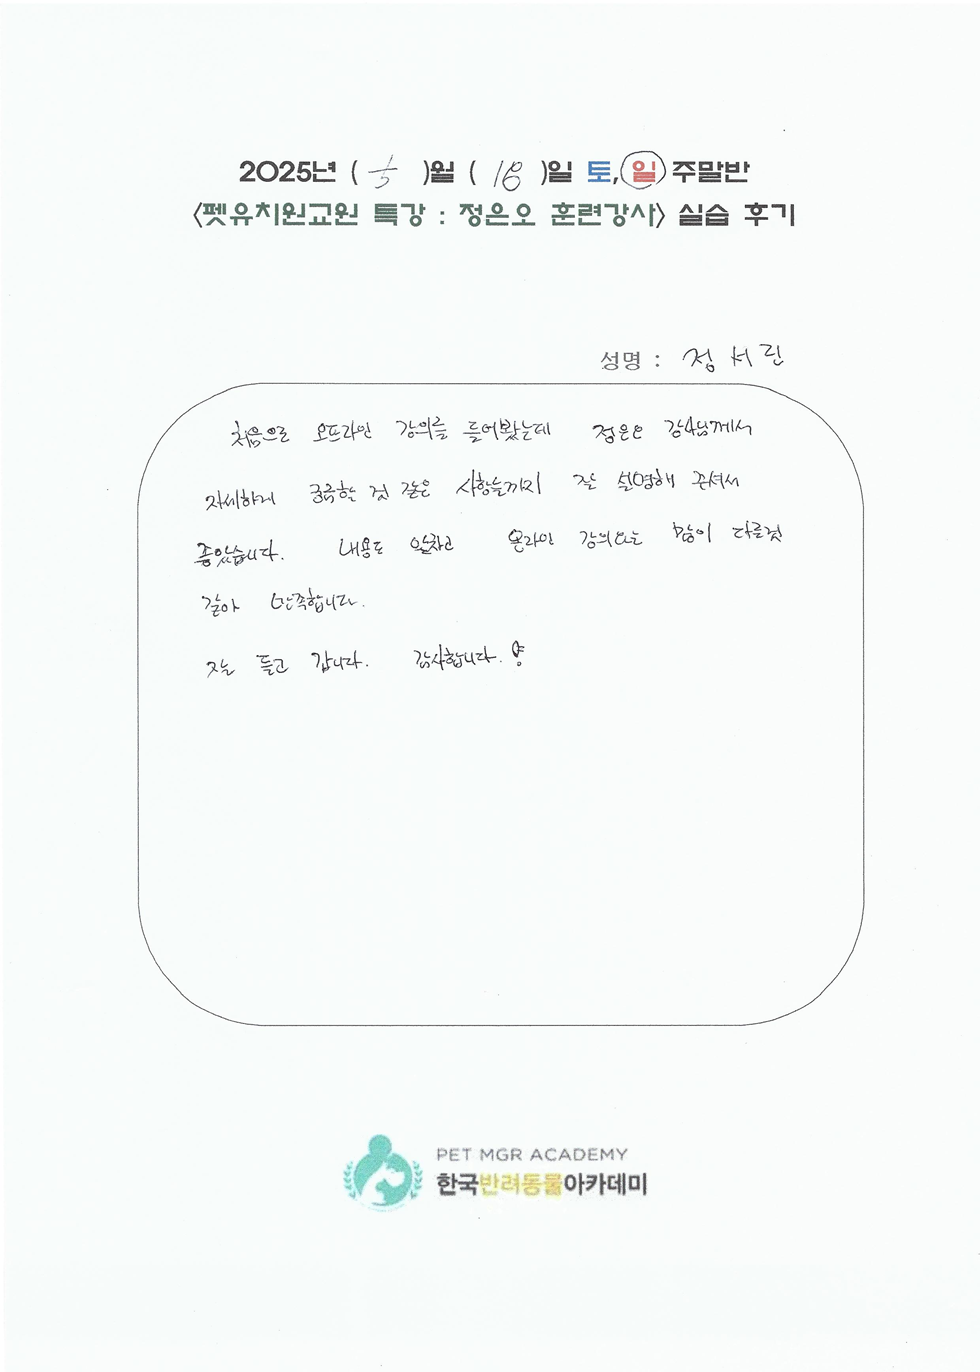 2025년 ( 5 )월 ( 18 )일 토, 일 주말반
<펫유치원교원 특강 : 정은오 훈련강사> 실습 후기
성명 : 정서린
처음으로 오프라인 강의를 들어봤는데 정은오 강사님께서
자세하게 궁금할 것 같은 사항들까지 잘 설명해 주셔서
좋았습니다. 내용도 알차고 온라인 강의와는 많이 다른것
같아 만족합니다.
잘 듣고 갑니다. 감사합니다.
PET MGR ACADEMY
한국반려동물아카데미